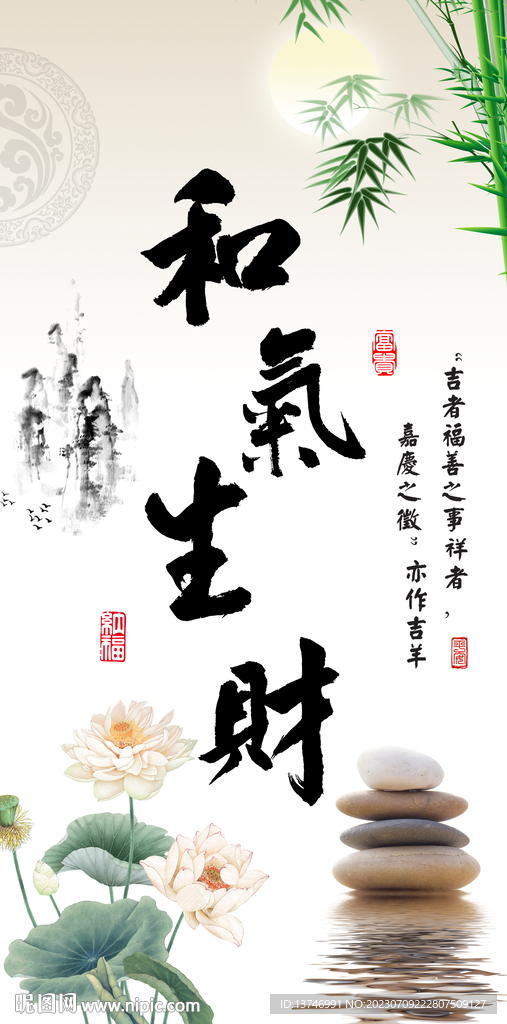 和氣生財
富貴
“吉者福善之事祥者，
嘉慶之徵”亦作吉羊
納福
昵图网 www.nipic.com
ID:13746991 NO:20230709222807509127